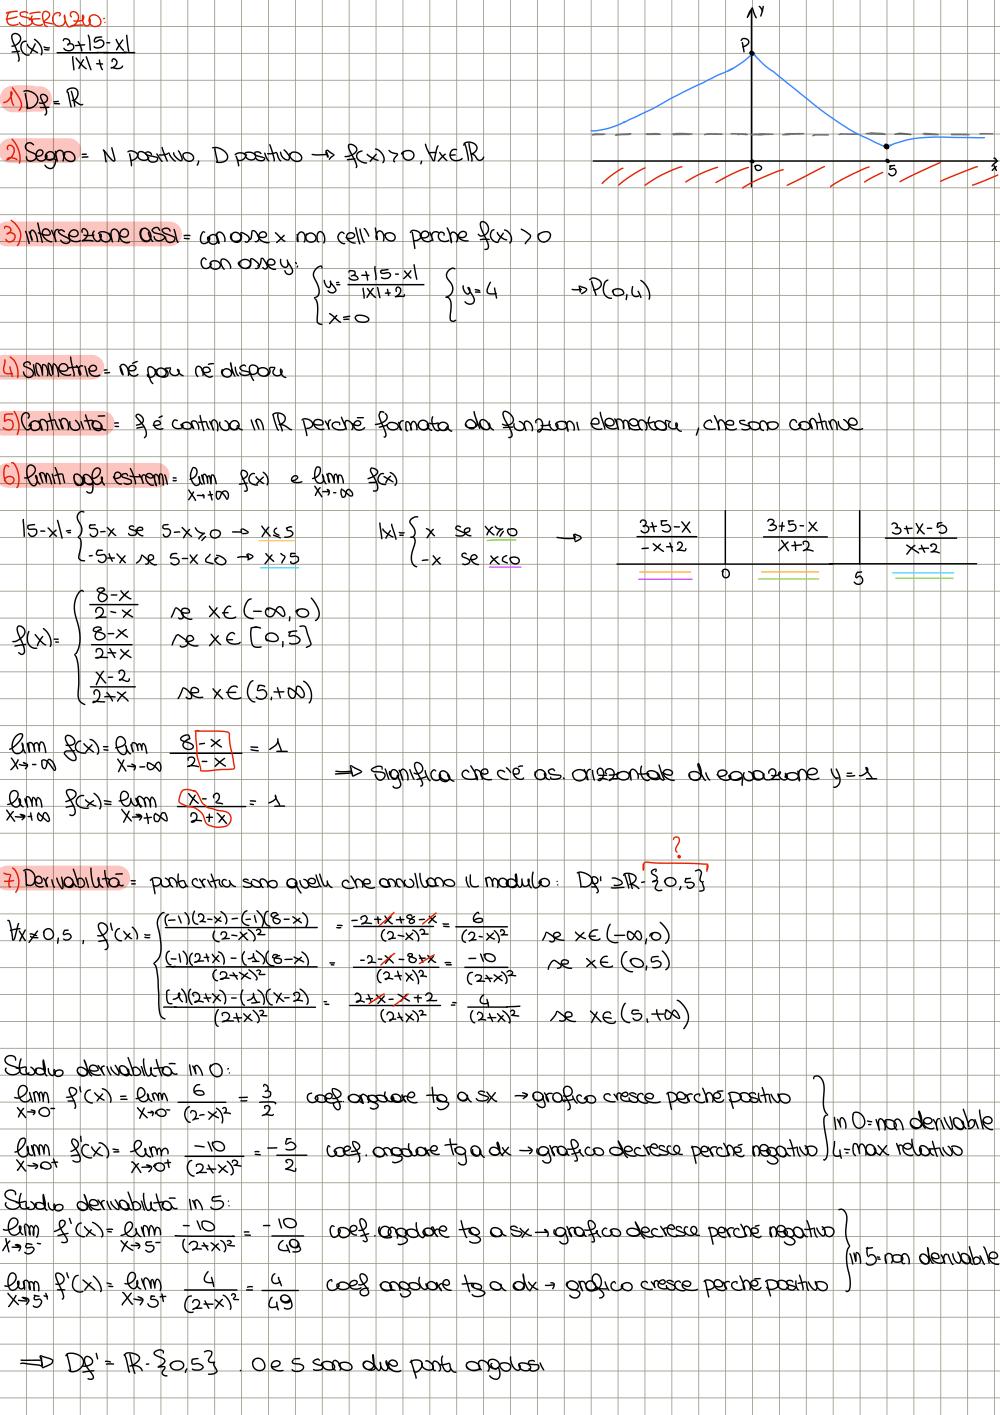 ESERCIZIO:
f(x)= (3+|5-x|)/(|x|+2)
y
P
0
5
x
1) Df = ℝ
2) Segno = N positivo, D positivo → f(x)>0, ∀x∈ℝ
3) intersezione assi = con asse x non cell'ho perche f(x)>0
con asse y: { y= (3+|5-x|)/(|x|+2) { y=4 → P(0,4)
x=0
4) Simmetrie = né pari né dispari
5) Continuità = f é continua in ℝ perché formata da funzioni elementari, che sono continue
6) limiti agli estremi = lim x→+∞ f(x) e lim x→-∞ f(x)
|5-x|= { 5-x se 5-x≥0 → x≤5 |x|= { x se x≥0 → (3+5-x)/(-x+2) (3+5-x)/(x+2) (3+x-5)/(x+2)
-5+x se 5-x<0 → x>5 -x se x<0 0 5
f(x)= { (8-x)/(2-x) se x∈(-∞,0)
(8-x)/(2+x) se x∈[0,5]
(x-2)/(2+x) se x∈(5,+∞)
lim x→-∞ f(x)= lim x→-∞ (8-x)/(2-x) = 1
⇒ Significa che c'é as. orizzontale di equazione y=1
lim x→+∞ f(x)= lim x→+∞ (x-2)/(2+x) = 1
?
7) Derivabilità = punti critici sono quelli che annullano il modulo: Df' ⊇ ℝ-{0,5}
∀x≠0,5, f'(x)= { ((-1)(2-x)-(-1)(8-x))/(2-x)² = (-2+x+8-x)/(2-x)² = 6/(2-x)² se x∈(-∞,0)
((-1)(2+x)-(1)(8-x))/(2+x)² = (-2-x-8+x)/(2+x)² = -10/(2+x)² se x∈(0,5)
((1)(2+x)-(1)(x-2))/(2+x)² = (2+x-x+2)/(2+x)² = 4/(2+x)² se x∈(5,+∞)
Studio derivabilità in 0:
lim x→0⁻ f'(x) = lim x→0⁻ 6/(2-x)² = 3/2 coef angolare tg a sx → grafico cresce perché positivo
in 0=non derivabile
lim x→0⁺ f'(x)= lim x→0⁺ -10/(2+x)² = -5/2 coef. angolare tg a dx → grafico decresce perché negativo 4=max relativo
Studio derivabilità in 5:
lim x→5⁻ f'(x)= lim x→5⁻ -10/(2+x)² = -10/49 coef. angolare tg a sx → grafico decresce perché negativo
in 5=non derivabile
lim x→5⁺ f'(x)= lim x→5⁺ 4/(2+x)² = 4/49 coef angolare tg a dx → grafico cresce perché positivo
⇒ Df' = ℝ-{0,5}. 0 e 5 sono due punti angolosi